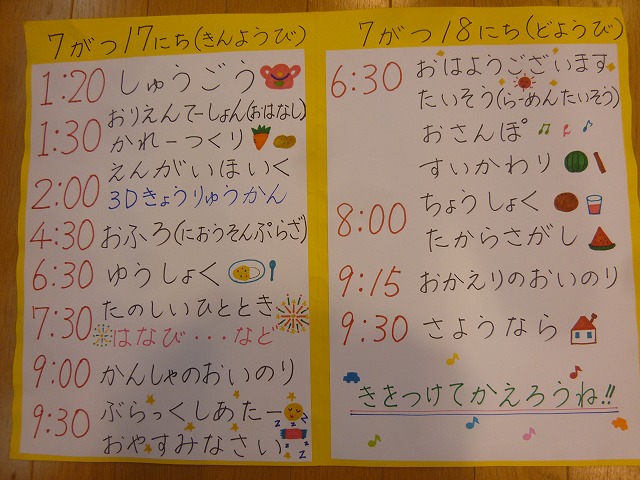 7がつ17にち(きんようび)
1:20 しゅうごう
1:30 おりえんてーしょん(おはなし)
かれーつくり
2:00 えんがいほいく
3Dきょうりゅうかん
4:30 おふろ(におうそんぷらざ)
6:30 ゆうしょく
7:30 たのしいひととき
はなび・・・など
9:00 かんしゃのおいのり
9:30 ぶらっくしあたー
おやすみなさい
z z z z z
7がつ18にち(どようび)
6:30 おはようございます
たいそう(らーめんたいそう)
おさんぽ
すいかわり
8:00 ちょうしょく
たからさがし
9:15 おかえりのおいのり
9:30 さようなら
きをつけてかえろうね!!